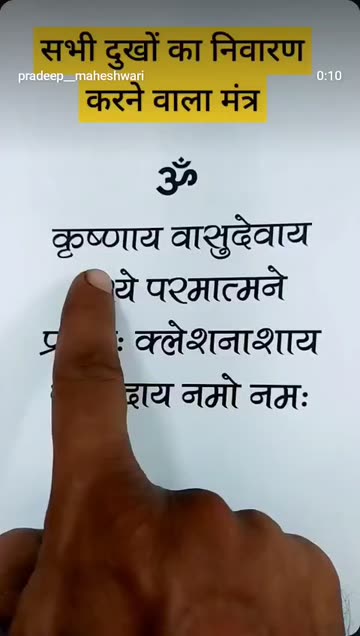 सभी दुखों का निवारण
pradeep__maheshwari 0:10
करने वाला मंत्र
ॐ
कृष्णाय वासुदेवाय
परमात्मने
क्लेशनाशाय
नमो नमः